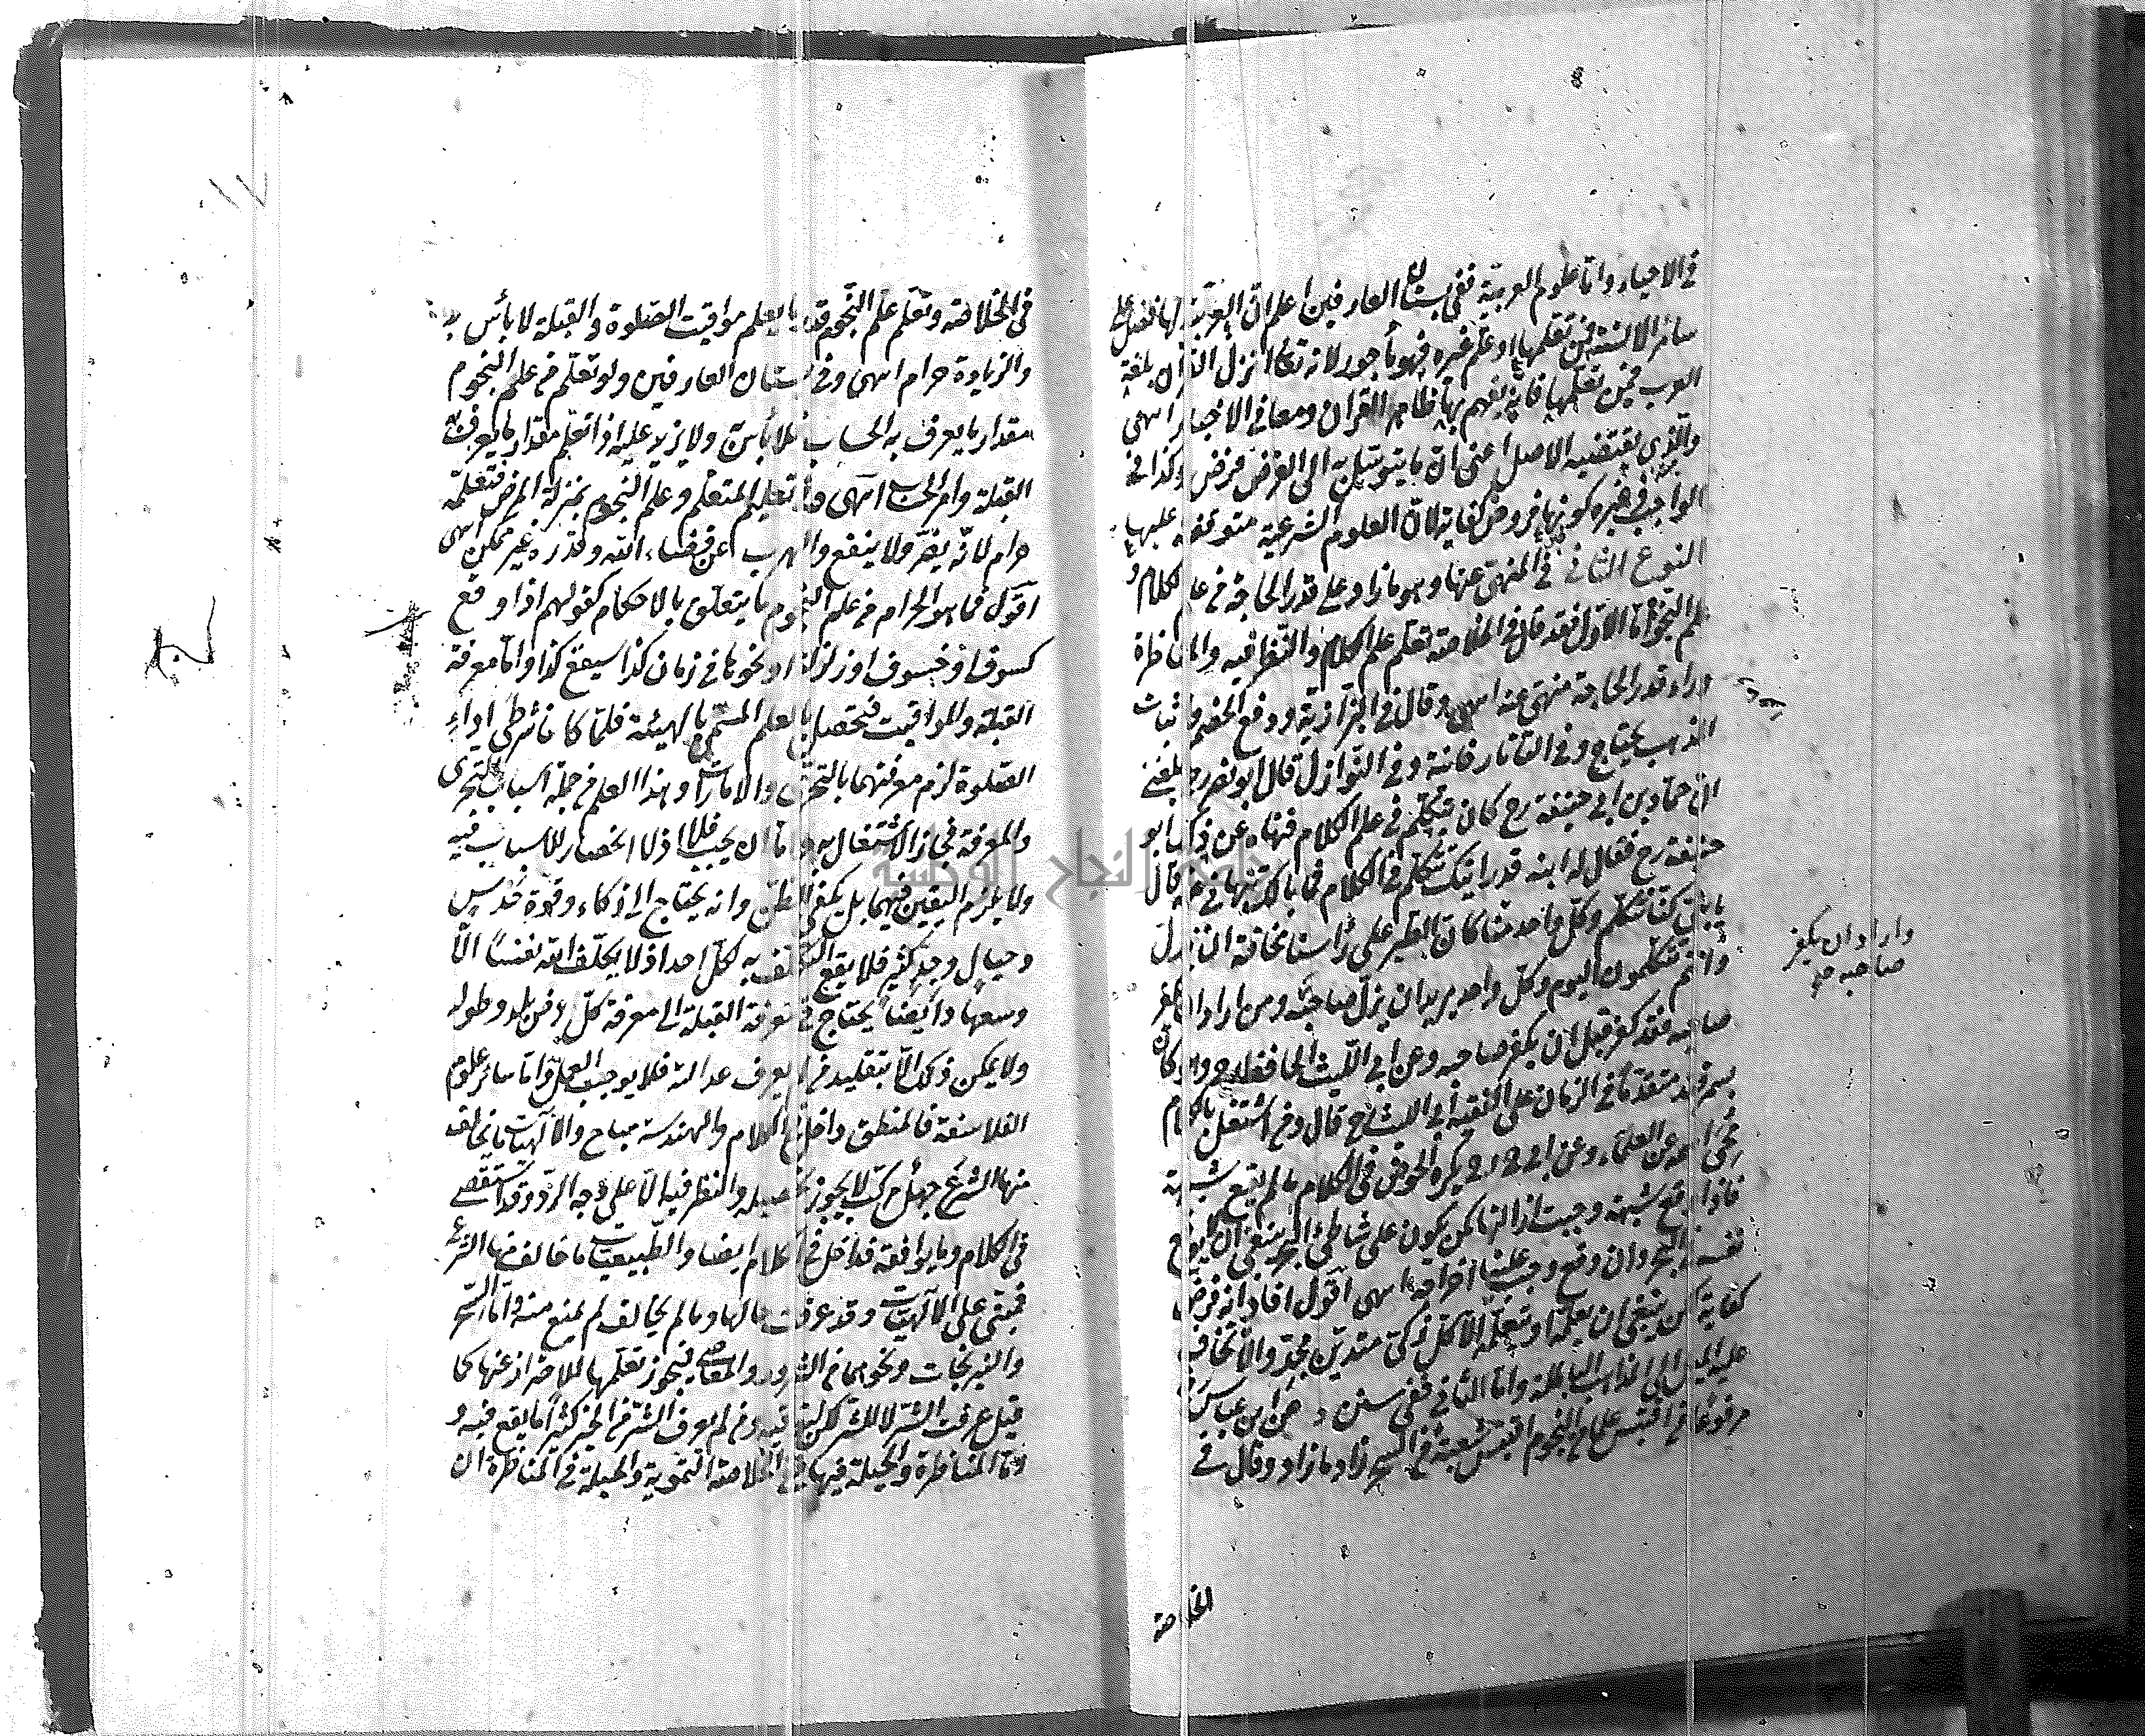 في الاحياء واما علوم العربية ففي بستان العارفين اعلم ان العربية لها فضل على
سائر الالسنة فمن تعلمها او علم غيره فهو مأجور لانه تعالى انزل القرآن بلغة
العرب فمن تعلمها فانه يفهم بها ظاهر القرآن ومعاني الاخبار انتهى
والذي يقتضيه الاصل اعني ان ما يتوسل به الى الفرض فرض وكذا في
الواجب في غيره كونها فروض كفاية لان العلوم الشرعية متوقفة عليها
النوع الثاني في المنهي عنها وهو ما زاد على قدر الحاجة من علم الكلام و
علم النجوم اما الاول فقد قال في الخلاصة تعلم علم الكلام والنظر فيه والمناظرة
وراء قدر الحاجة منهي عنه انتهى وقال في البزازية ودفع الخصم واثبات
المذهب يحتاج وفي التاتارخانية وفي النوازل قال ابو نصر رح بلغني
ان حماد بن ابي حنيفة رح كان يتكلم في علم الكلام فنهاه عن ذلك ابو
حنيفة رح فقال له ابنه قد رايتك تتكلم في الكلام فما بالك تنهاني عنه قال
يا بني كنا نتكلم وكل واحد منا كان الطير على رأسنا مخافة ان نزل
وانتم تتكلمون اليوم وكل واحد يريد ان يزل صاحبه ومن اراد ان يكفر
صاحبه فقد كفر قبل ان يكفر صاحبه وعن ابي الليث الحافظ رح وهو كان
بسمرقند متقدما في الزمان على الفقيه ابي الليث رح قال من اشتغل بالكلام
محي اسمه عن العلماء وعن ابي ح رح يكره الخوض في الكلام ما لم يقع شبهة
فاذا وقع شبهة وجبت ازالتها كمن يكون على شاطئ البحر ينبغي ان لا يوقع
نفسه في البحر وان وقع وجب علينا اخراجه انتهى اقول افاد انه فرض
كفاية لكن ينبغي ان يعلمه او يتعلمه الا كل ذكي متدين مجد والا تخاف
عليه الميل الى المذاهب الباطلة واما الثاني ففي سنن د عن ابن عباس
مرفوعا من اقتبس علما من النجوم اقتبس شعبة من السحر زاد ما زاد وقال في
الخلاصة
واراد ان يكفر
صاحبه صح
في الخلاصة وتعلم علم النجوم قدر ما يعلم مواقيت الصلوة والقبلة لا بأس به
والزيادة حرام انتهى وفي بستان العارفين ولو تعلم من علم النجوم
مقدار ما يعرف به الحساب فلا بأس به ولا يزيد عليه اذا تعلم مقدار ما يعرف به
القبلة وامر الحساب انتهى وفي تعليم المتعلم وعلم النجوم بمنزلة المرض فتعلمه
حرام لانه يضر ولا ينفع والهرب عن قضاء الله وقدره غير ممكن انتهى
اقول فما هو الحرام من علم النجوم ما يتعلق بالاحكام كقولهم اذا وقع
كسوف او خسوف او زلزلة او نحوها في زمان كذا سيقع كذا واما معرفة
القبلة والمواقيت فتحصل بالعلم المسمى بالهيئة فلما كانا شرطي اداء
الصلوة لزم معرفتهما بالتحري والامارات وهذا العلم من جملة اسباب التحري
والمعرفة فجاز الاشتغال به واما ان يجب فلا اذ لا انحصار للاسباب فيه
ولا يلزم اليقين فيهما بل يكفي الظن وانه يحتاج الى ذكاء وقوة حدس
وخيال وجد كثير فلا يقع التكليف به لكل احد اذ لا يكلف الله نفسا الا
وسعها وايضا يحتاج في معرفة القبلة الى معرفة كل عرض بلد وطوله
ولا يمكن ذلك الا بتقليد من لم يعرف عدالته فلا يوجب العمل واما سائر علوم
الفلاسفة فالمنطق داخل في الكلام والهندسة مباح والالهيات ما يخالف
منها الشرع جهل مركب لا يجوز تحصيله والنظر فيه الا على وجه الرد وقد استقصي
في الكلام وما يوافقه فداخل في الكلام ايضا والطبيعيات ما خالف منها الشرع
فمبني على الالهيات وقد عرفت حالها وما لم يخالف لم يمنع منه واما السحر
والنيرنجات ونحوهما من الشرور والمعاصي فيجوز تعلمها للاحتراز عنها كما
قيل عرفت الشر لا للشر لكن لتوقيه ومن لم يعرف الشر من الخير كثيرا ما يقع فيه و
اما المناظرة والحيلة فيها ففي الخلاصة التمويه والحيلة في المناظرة ان